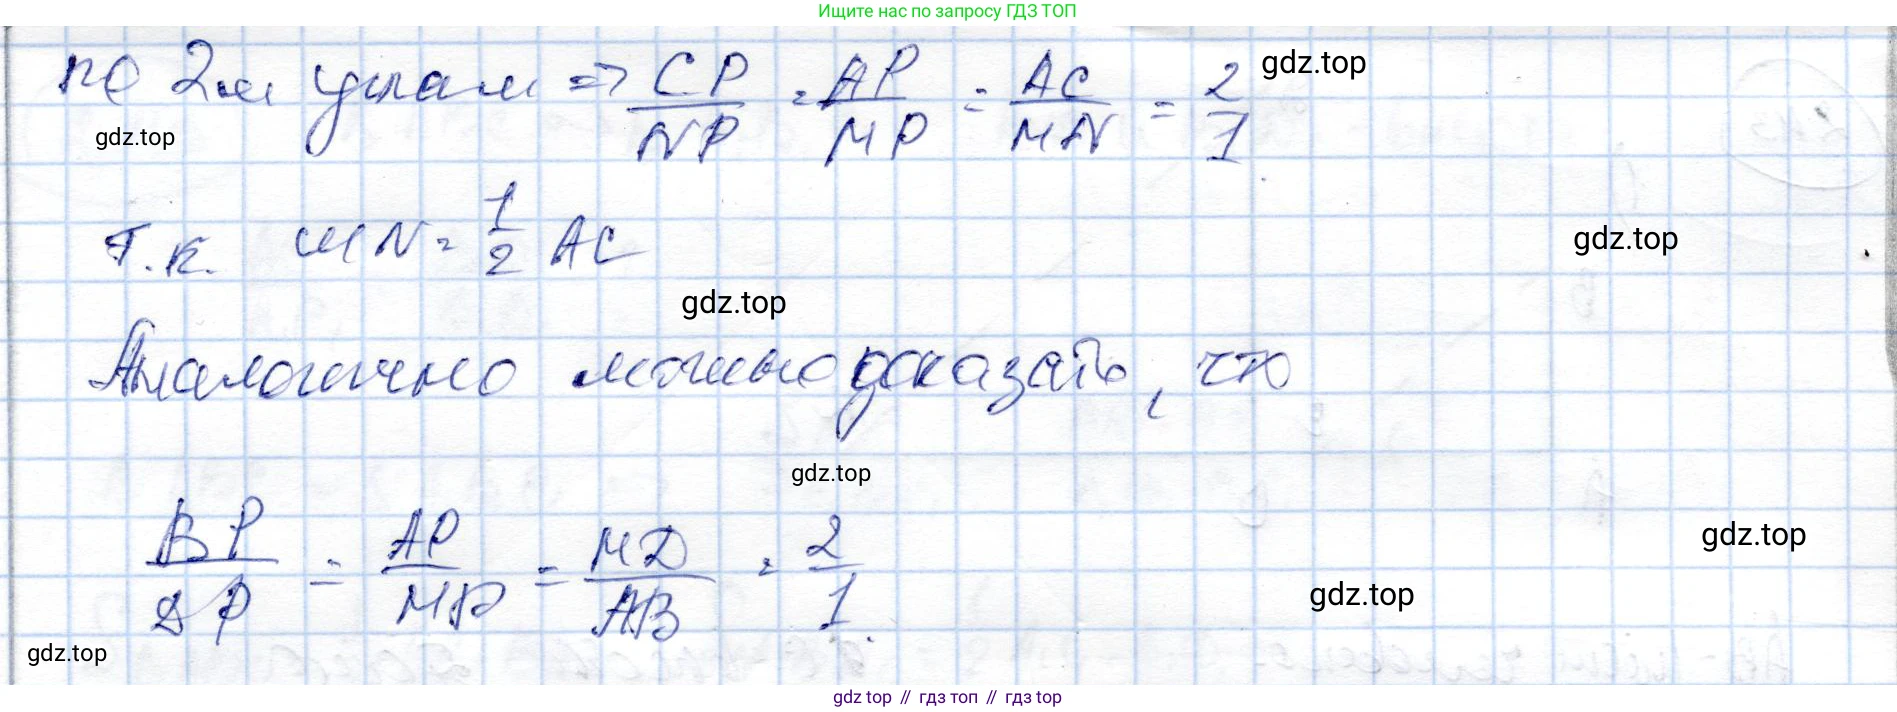 Ищите нас по запросу ГДЗ ТОП
по 2м углам ⇒ CP/NP = AP/MP = AC/MN = 2/1
gdz.top
gdz.top
т.к. MN = 1/2 AC
gdz.top
gdz.top
Аналогично можно доказать, что
gdz.top
BP/DP = AP/MP = MD/AB = 2/1.
gdz.top
gdz.top
gdz.top
gdz top // гдз топ // гдз top